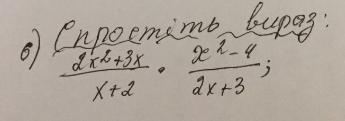 Спростіть вираз:
в) (2x²+3x)/(x+2) · (x²-4)/(2x+3);